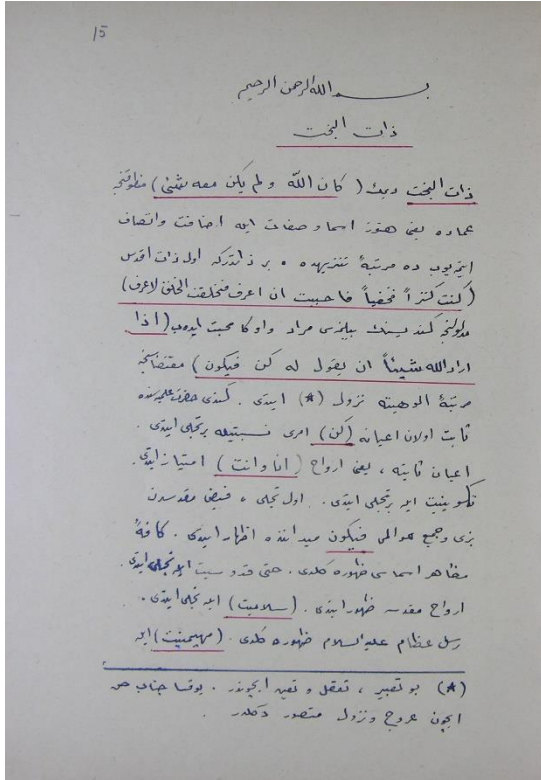 15
بسم الله الرحمن الرحيم
ذات البخت
ذات البخت ديمك ( كان الله و لم يكن معه شئ ) منطوقنجه
عماده يعنى هنوز اسما و صفات ايله اضافت واتصاف
ايتميوب ده مرتبۀ تنزيهده ٠ بر ذاتدركه اول ذات اقدس
( كنت كنزاً مخفياً فاحببت ان اعرف فخلقت الخلق لاعرف )
مدلولنجه كندىسنك بيلنمسى مراد و او كا محبت ايدوب ( اذا
اراد الله شيئاً ان يقول له كن فيكون ) مقتضاسنجه
مرتبۀ الوهيته نزول (*) ايتدى . كندى حضرت علميه سنده
ثابت اولان اعيانه ( كن ) امرى نسبتيله بر تجلى ايتدى .
اعيان ثابته ، يعنى ارواح ( انا وانت ) امتياز ايتدى .
تكوينيت ايله بر تجلى ايتدى . اول تجلى ، فيض مقدسدن
بزى و جميع عوالمى فيكون ميداننده اظهار ايتدى . كافۀ
مظاهر اسماسى ظهوره كلدى . حتى قدوسيت ايله تجلى ايتدى .
ارواح مقدسه ظهور ايتدى . ( سلاميت ) ايله تجلى ايتدى .
رسل عظام عليه السلام ظهوره كلدى . ( مهيمنيت ) ايله
(*) بو تعبير ، تعقل و تعين ايچوندر . يوقسا جناب حق
ايچون عروج و نزول متصور دكلدر .